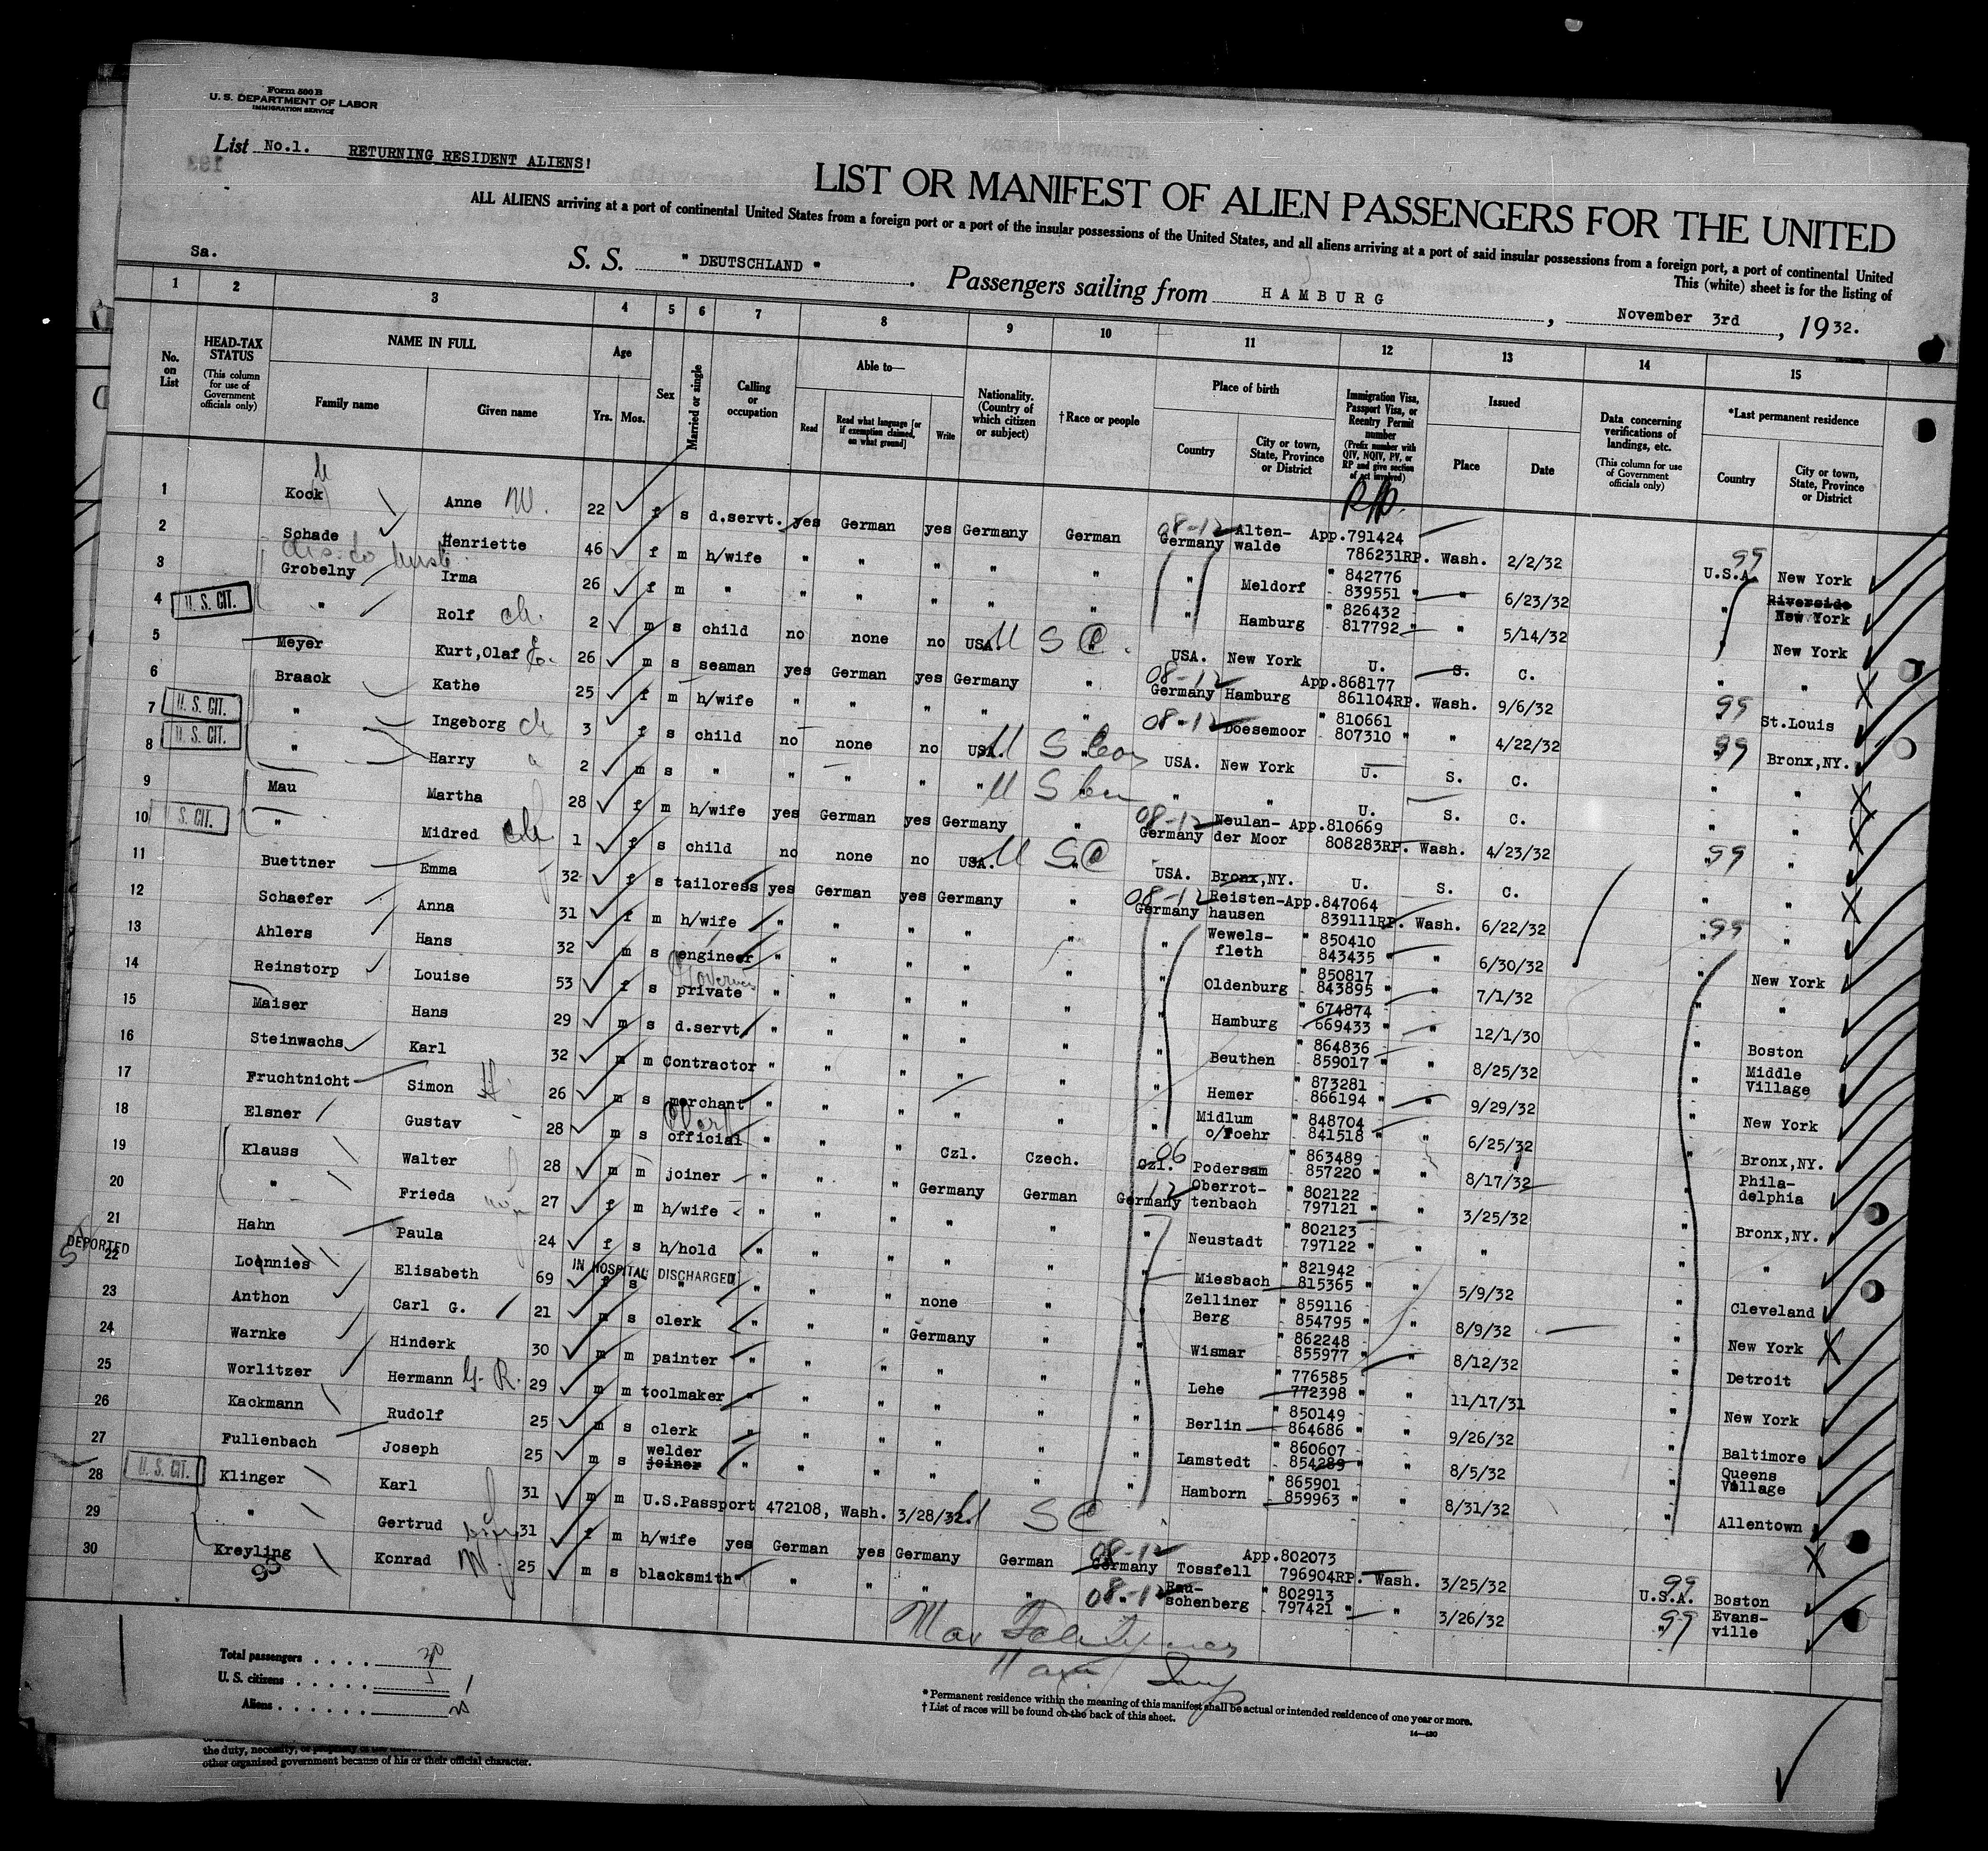 Form 500 B
U. S. DEPARTMENT OF LABOR
IMMIGRATION SERVICE
List No.1. RETURNING RESIDENT ALIENS!
LIST OR MANIFEST OF ALIEN PASSENGERS FOR THE UNITED
ALL ALIENS arriving at a port of continental United States from a foreign port or a port of the insular possessions of the United States, and all aliens arriving at a port of said insular possessions from a foreign port, a port of continental United
This (white) sheet is for the listing of
Sa.
S. S. " DEUTSCHLAND " . Passengers sailing from HAMBURG , November 3rd , 19 32.
1 2 3 4 5 6 7 8 9 10 11 12 13 14 15
No. on List
HEAD-TAX STATUS (This column for use of Government officials only)
NAME IN FULL
Family name Given name
Age
Yrs. Mos.
Sex
Married or single
Calling or occupation
Able to—
Read
Read what language [or if exemption claimed, on what ground]
Write
Nationality. (Country of which citizen or subject)
† Race or people
Place of birth
Country
City or town, State, Province or District
Immigration Visa, Passport Visa, or Reentry Permit number (Prefix number with QIV, NQIV, PV, or RP and give section of act involved)
Issued
Place Date
Data concerning verifications of landings, etc. (This column for use of Government officials only)
*Last permanent residence
Country
City or town, State, Province or District
1 Kook Anne W. 22 f s d.servt. yes German yes Germany German 08-12 Germany Alten-walde App.791424 786231RP. Wash. 2/2/32 99 U.S.A. New York
2 Schade Henriette 46 f m h/wife " " " " " " Meldorf " 842776 839551 " " 6/23/32 " Riverside New York
3 Grobelny Irma 26 f m " " " " " " " Hamburg " 826432 817792 " " 5/14/32 " New York
4 U. S. CIT. " Rolf ch. 2 m s child no none no USA. U S C. " USA. New York U. S. C. " "
5 Meyer Kurt,Olaf 26 m s seaman yes German yes Germany " 08-12 Germany Hamburg App.868177 861104RP. Wash. 9/6/32 99 St.Louis
6 Braack Kathe 25 f m h/wife " " " " " 08-12 Doesemoor " 810661 807310 " " 4/22/32 99 Bronx,NY.
7 U. S. CIT. " Ingeborg ch 3 f s child no none no USA. U S " USA. New York U. S. C. " "
8 U. S. CIT. " Harry 2 m s " " " " " U S " " " U. S. C. " "
9 Mau Martha 28 f m h/wife yes German yes Germany " 08-12 Germany Neulan-der Moor App.810669 808283RP. Wash. 4/23/32 99 "
10 U. S. CIT. " Midred ch 1 f s child no none no USA. U S C " USA. Bronx,NY. U. S. C. " "
11 Buettner Emma 32 f s tailoress yes German yes Germany " 08-12 Germany Reisten-hausen App.847064 839111RP. Wash. 6/22/32 99 "
12 Schaefer Anna 31 f m h/wife " " " " " " Wewels-fleth " 850410 843435 " " 6/30/32 " New York
13 Ahlers Hans 32 m s engineer " " " " " " Oldenburg " 850817 843895 " " 7/1/32 " "
14 Reinstorp Louise 53 f s private " " " " " " Hamburg " 674874 669433 " " 12/1/30 " Boston
15 Maiser Hans 29 m s d.servt. " " " " " " Beuthen " 864836 859017 " " 8/25/32 " Middle Village
16 Steinwachs Karl 32 m m Contractor " " " " " " Hemer " 873281 866194 " " 9/29/32 " New York
17 Fruchtnicht Simon 26 m s merchant " " " " " " Midlum o/Foehr " 848704 841518 " " 6/25/32 " Bronx,NY.
18 Elsner Gustav 28 m s official Clerk " " " Czl. Czech. Czl. 06 Podersam " 863489 857220 " " 8/17/32 " Phila-delphia
19 Klauss Walter 28 m m joiner " " " Germany German Germany 12 Oberrot-tenbach " 802122 797121 " " 3/25/32 " Bronx,NY.
20 " Frieda 27 f m h/wife " " " " " " Neustadt " 802123 797122 " " " " "
21 Hahn Paula 24 f s h/hold " " " " " " Miesbach " 821942 815365 " " 5/9/32 " Cleveland
DEPORTED
22 Loennies Elisabeth 69 f s " IN HOSPITAL DISCHARGED " " " none " " Zelliner Berg " 859116 854795 " " 8/9/32 " New York
23 Anthon Carl G. 21 m s clerk " " " Germany " " Wismar " 862248 855977 " " 8/12/32 " Detroit
24 Warnke Hinderk 30 m m painter " " " " " " Lehe " 776585 772398 " " 11/17/31 " New York
25 Worlitzer Hermann G. R. 29 m m toolmaker " " " " " " Berlin " 850149 864686 " " 9/26/32 " Baltimore
26 Kackmann Rudolf 25 m s clerk " " " " " " Lamstedt " 860607 854289 " " 8/5/32 " Queens Village
27 Fullenbach Joseph 25 m s welder joiner " " " " " " Hamborn " 865901 859963 " " 8/31/32 " Allentown
28 U. S. CIT. Klinger Karl 31 m m U.S.Passport 472108, Wash. 3/28/32. U S C
29 " Gertrud 31 f m h/wife yes German yes Germany German 08-12 Germany Tossfell App.802073 796904RP. Wash. 3/25/32 99 U.S.A. Boston
30 Kreyling Konrad 25 m s blacksmith " " " " " 08-12 " Rau-schenberg " 802913 797421 " " 3/26/32 99 " Evans-ville
Total passengers . . . . 30
U. S. citizens . . . . . . 5
Aliens . . . . . . 25
* Permanent residence within the meaning of this manifest shall be actual or intended residence of one year or more.
† List of races will be found on the back of this sheet.
14—430
other organized government because of his or their official character.